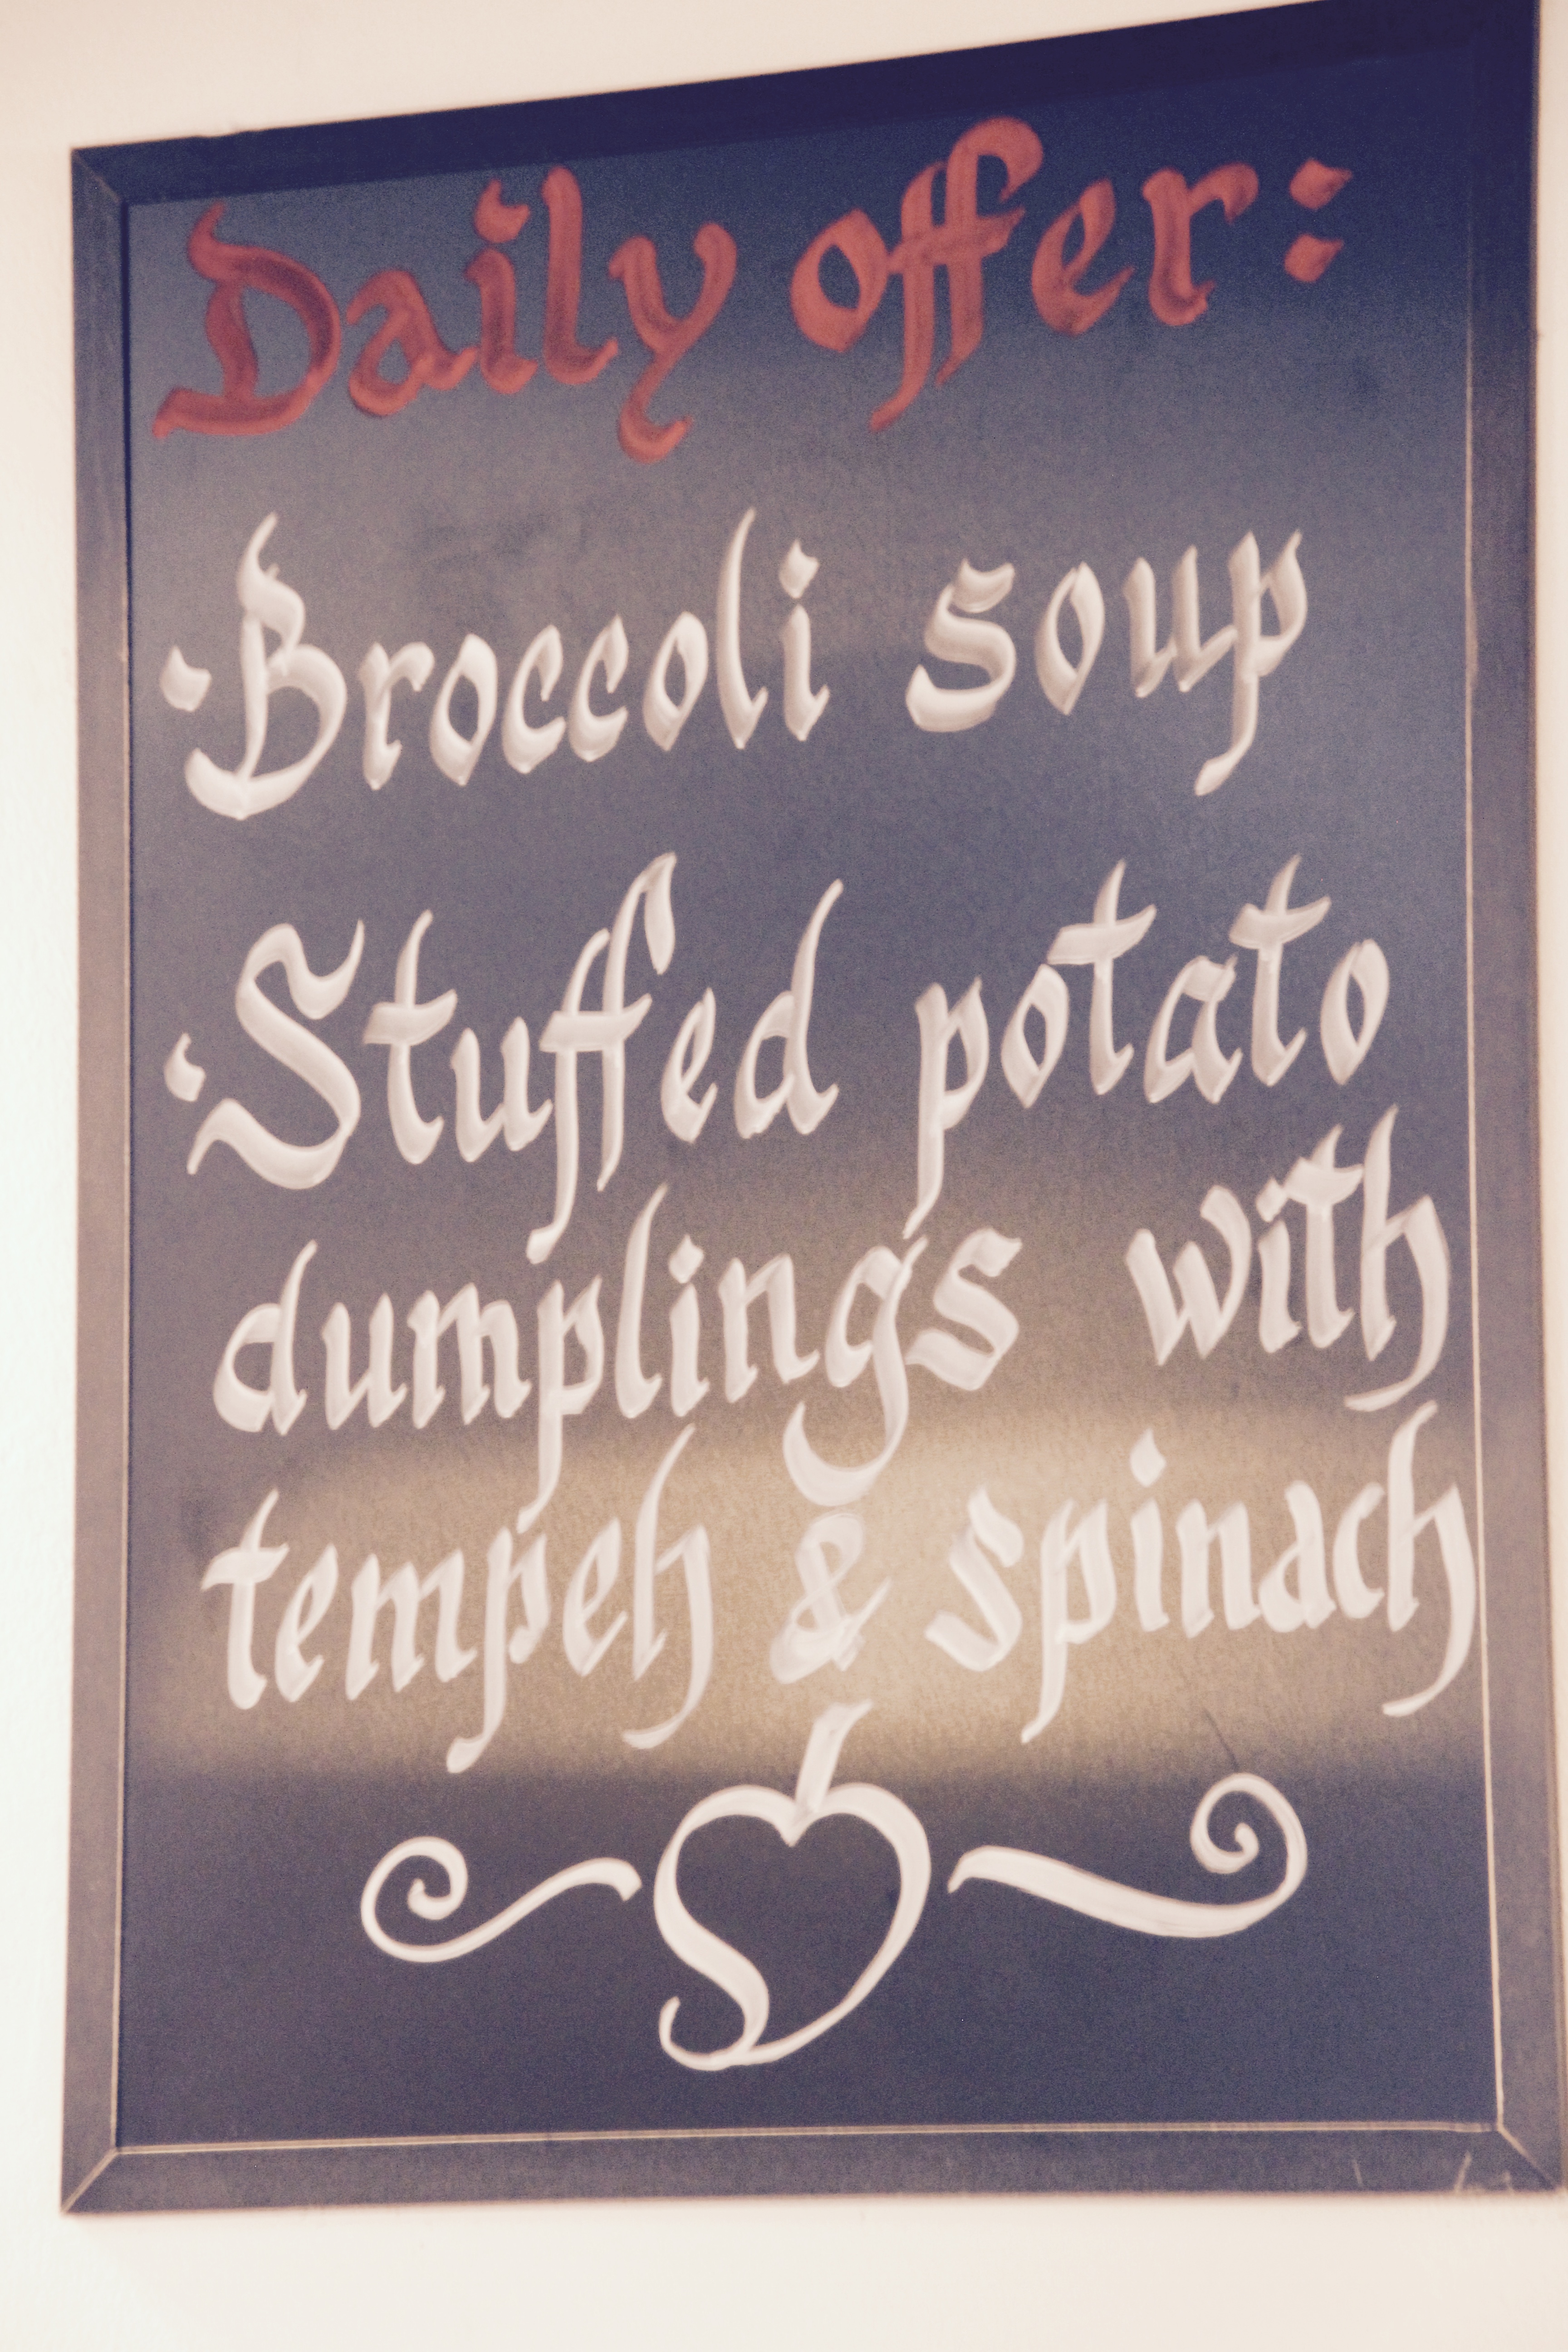 Daily offer:
· Broccoli soup
· Stuffed potato
dumplings with
tempeh & spinach